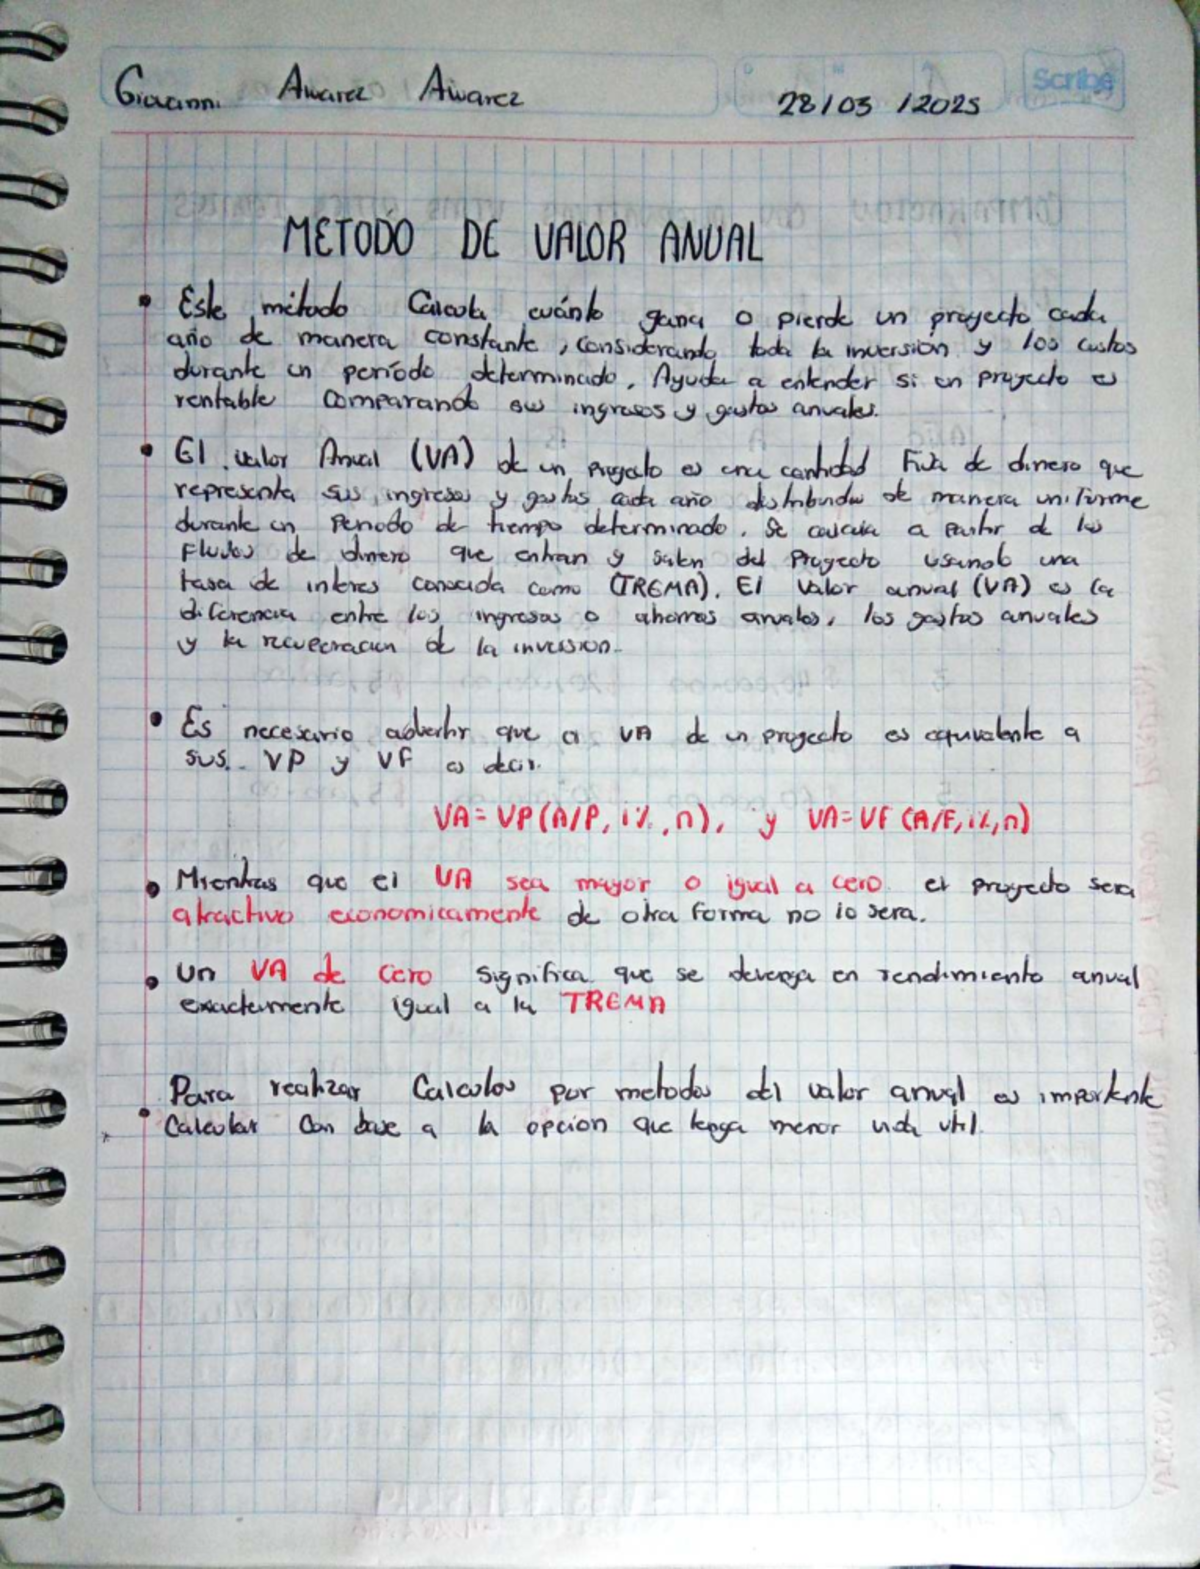 Giovanni Alvarez Alvarez 28/03/2025
Scribe
METODO DE VALOR ANUAL
• Este método Calcula cuánto gana o pierde un proyecto cada
año de manera constante, considerando toda la inversión y los custos
durante un período determinado. Ayuda a entender si un proyecto es
rentable comparando sus ingresos y gastos anuales.
• El valor Anual (VA) de un proyecto es una cantidad Fija de dinero que
representa sus ingresos y gastos cada año distribuidos de manera uniforme
durante un Periodo de tiempo determinado. Se calcula a partir de los
Flujos de dinero que entran y salen del Proyecto usando una
tasa de interes conocida como (TREMA). El valor anual (VA) es la
diferencia entre los ingresos o ahorros anuales, los gastos anuales
y la recuperación de la inversion.
• Es necesario advertir que a VA de un proyecto es equivalente a
sus VP y VF es decir.
VA=VP(A/P, i%, n), y VA=VF(A/F, i%, n)
• Mientras que el VA sea mayor o igual a cero el proyecto sera
atractivo economicamente de otra forma no lo sera.
• Un VA de Cero significa que se devenga en rendimiento anual
exactamente igual a la TREMA
Para realizar Calculos por metodos del valor anual es importante
• Calcular Con base a la opcion que tenga menor vida util.